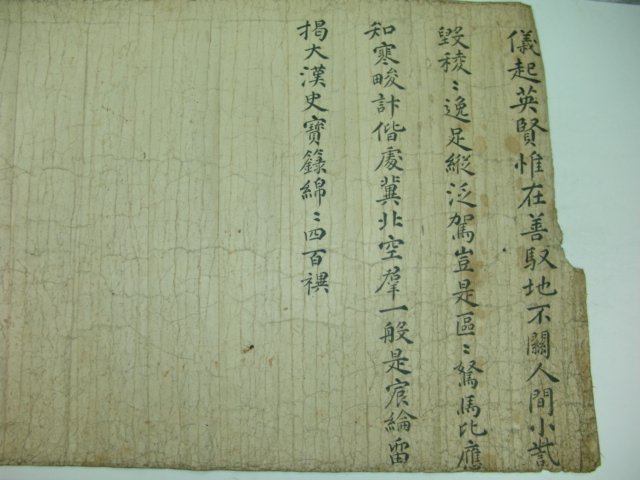 儀起英賢惟在善馭地不關人間小
毀稜〻逸足縱泛駕豈是區〻駑馬比應
知寒畯計偕處冀北空群一般是宸綸留
揭大漢史寶籙綿〻四百禩